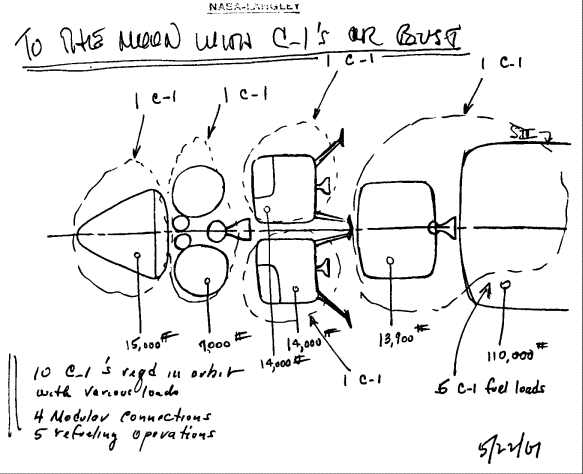 NASA-LANGLEY
TO THE MOON WITH C-1's OR BUST
1 C-1
1 C-1
1 C-1
1 C-1
SII
15,000#
9,000#
14,000#
14,000#
13,900#
110,000#
1 C-1
5 C-1 fuel loads
10 C-1's reqd in orbit
with various loads
4 Modular connections
5 refueling operations
5/22/61